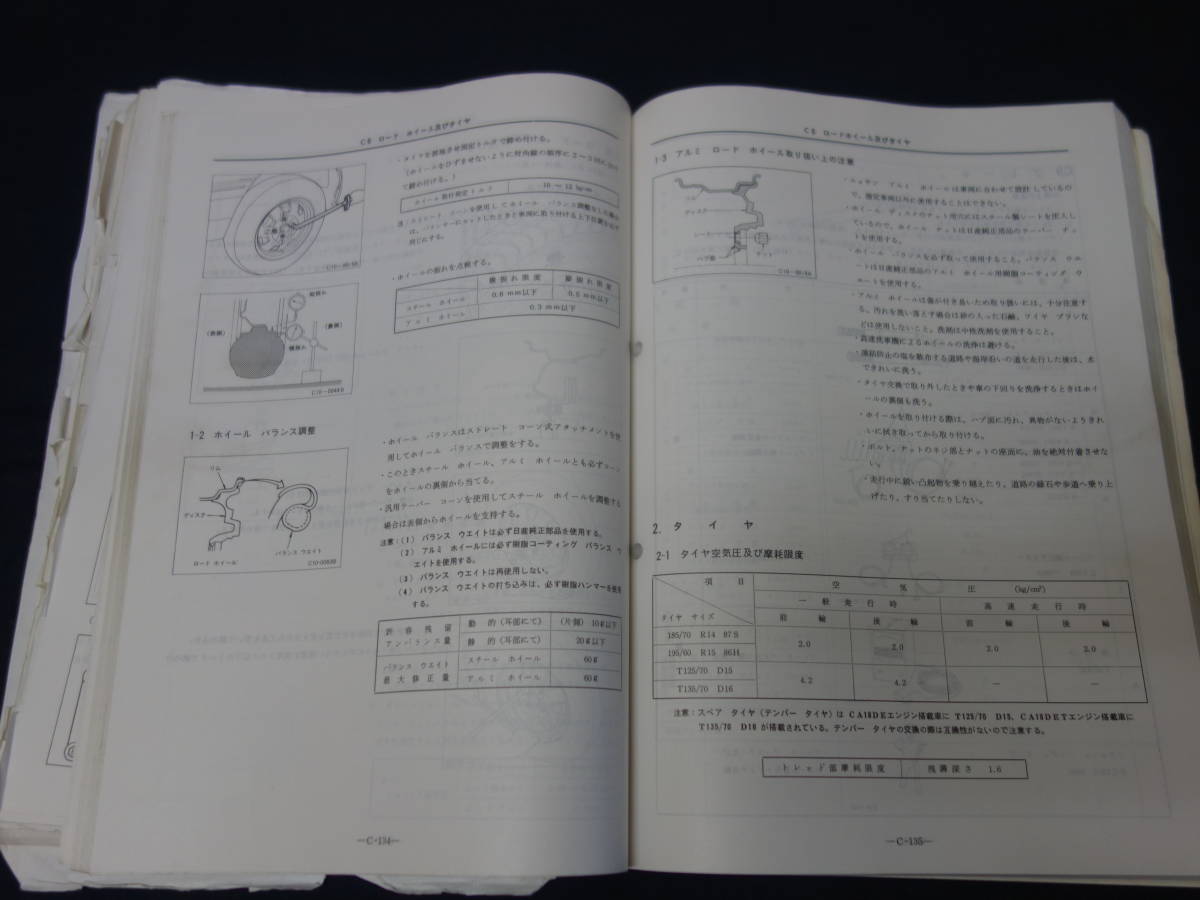 C8 ロード ホイール及びタイヤ
・タイヤを接地させ規定トルクで締め付ける。
（ホイールをひずませないように対角線の順序に2〜3回に分け
て締め付ける。）
ホイール取付規定トルク 10 〜 12 kg-m
・ホイールの振れを点検する。
横振れ限度 縦振れ限度
スチール ホイール 0.8 mm以下 0.5 mm以下
アルミ ホイール 0.3 mm以下
縦振れ
（表側） （裏側）
横振れ
1-2 ホイール バランス調整
リム
ディスク
バランス ウエイト
ロード ホイール
・ホイール バランスはストレート コーン式アタッチメントを使
用してホイール バランスで調整をする。
・このときスチール ホイール、アルミ ホイールとも必ずコーン
をホイールの裏側から当てる。
・汎用テーパー コーンを使用してスチール ホイールを調整する
場合は表側からホイールを支持する。
注意：(1) バランス ウエイトは必ず日産純正部品を使用する。
(2) アルミ ホイールには必ず樹脂コーティング バランス ウ
エイトを使用する。
(3) バランス ウエイトは再使用しない。
(4) バランス ウエイトの打ち込みは、必ず樹脂ハンマーを使用
する。
許容残留アンバランス量 動 的（耳部にて） （片側）10g以下
静 的（耳部にて） 20g以下
バランス ウエイト最大修正量 スチール ホイール 60g
アルミ ホイール 60g
—C-134—
C8 ロードホイール及びタイヤ
1-3 アルミ ロード ホイール取り扱い上の注意
リム
ディスク
シート
ナット
ハブ部
・ニッサン アルミ ホイールは車両に合わせて設計しているの
で、指定車両以外に使用することはできない。
・ホイール ディスクのナット用穴にはスチール製シートを圧入し
ているので、ホイール ナットは日産純正部品のテーパー ナッ
トを使用する。
・ホイール バランスを必ず取って使用すること。バランス ウエ
ートは日産純正部品のアルミ ホイール用樹脂コーティング ウ
エートを使用する。
・アルミ ホイールは傷が付き易いため取り扱いには、十分注意す
る。汚れを洗い落とす場合は砂の入った石鹸、ワイヤ ブラシな
どは使用しないこと。洗剤は中性洗剤を使用すること。
・高速洗車機によるホイールの洗浄は避ける。
・凍結防止の塩を散布する道路や海岸沿いの道を走行した後は、水
できれいに洗う。
・タイヤ交換で取り外したときや車の下回りを洗浄するときはホイ
ールの裏側も洗う。
・ホイールを取り付ける際は、ハブ面に汚れ、異物がないようきれ
いに拭き取ってから取り付ける。
・ボルト、ナットのネジ部とナットの座面に、油を絶対付着させな
い。
・走行中に鋭い凸起物を乗り越えたり、道路の縁石や歩道へ乗り上
げたり、すり当てたりしない。
2. タ イ ヤ
2-1 タイヤ空気圧及び摩耗限度
項 目 空 気 圧 (kg/cm²)
一 般 走 行 時 高 速 走 行 時
タイヤ サイズ 前 輪 後 輪 前 輪 後 輪
185/70 R14 87S 2.0 2.0 2.0 2.0
195/60 R15 86H
T125/70 D15 4.2 4.2 — —
T135/70 D16
注意：スペア タイヤ（テンパー タイヤ）は CA18DEエンジン搭載車に T125/70 D15、CA18DETエンジン搭載車に
T135/70 D16 が搭載されている。テンパー タイヤの交換の際は互換性がないので注意する。
トレッド部摩耗限度 残溝深さ 1.6
—C-135—